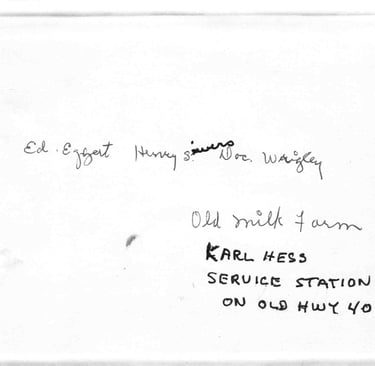 Ed. Eggert Henry Sievers Doc. Wrigley
Old Milk Farm
KARL HESS
SERVICE STATION
ON OLD HWY 40